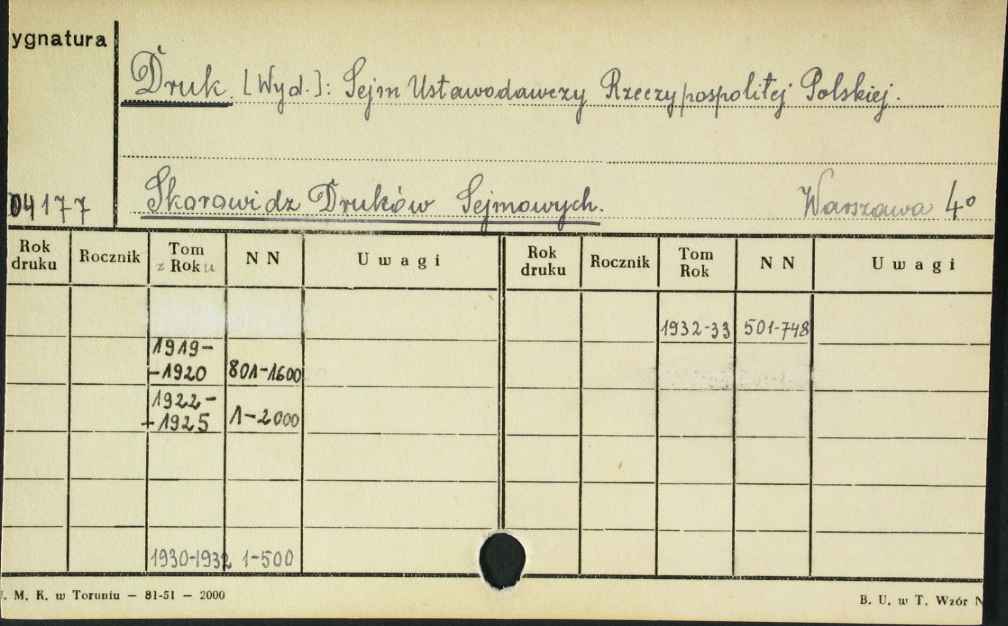 ygnatura
Druk. [Wyd.]: Sejm Ustawodawczy Rzeczypospolitej Polskiej.
04177
Skorowidz Druków Sejmowych.
Warszawa 4°
Rok druku Rocznik Tom z Roku N N Uwagi Rok druku Rocznik Tom Rok N N Uwagi
1932-33 501-748
1919-
-1920 801-1600
1922-
-1925 1-2000
1930-1932 1-500
. M. K. w Toruniu — 81-51 — 2000
B. U. w T. Wzór N